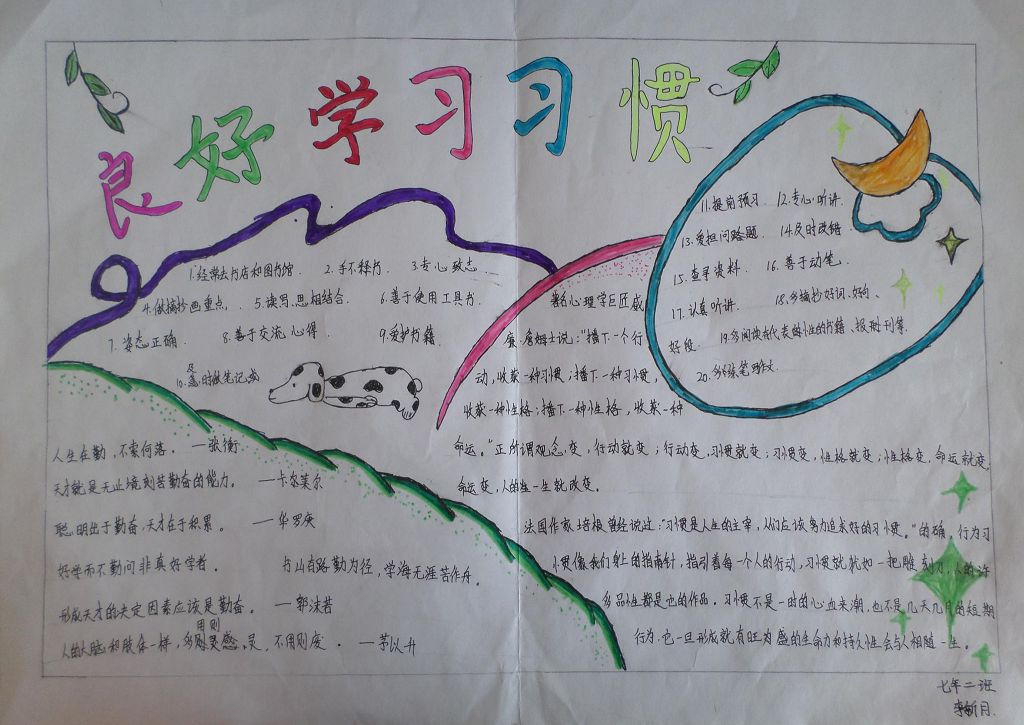 良好学习习惯
1.经常去书店和图书馆. 2.手不释书. 3.专心致志.
4.做摘抄画重点, 5.读写思相结合. 6.善于使用工具书.
7.姿态正确. 8.善于交流心得 9.爱护书籍.
10.及时做笔记.
11.提前预习. 12.专心听讲.
13.爱担问咯题. 14.及时改错.
15.查寻资料. 16.善于动笔.
17.认真听讲. 18.多摘抄好词、好句、
好段. 19.多阅读有代表的性的书籍、报刊等.
20.多练笔
著名心理学巨匠威
廉·詹姆士说:"播下一个行
动,收获一种习惯;播下一种习惯,
收获一种性格;播下一种性格,收获一种
命运。"正所谓观念变,行动就变;行动变,习惯就变;习惯变,性格就变;性格变,命运就变,
命运变,人的生一生就改变。
法国作家培根曾经说过:"习惯是人生的主宰,人们应该努力追求好的习惯。"的确,行为习
惯像我们身上的指南针,指引着每一个人的行动,习惯就犹如一把雕刻刀,人的许
多品性都是它的作品。习惯不是一时的心血来潮,也不是几天几月的短期
行为.它一旦形成就有旺为盛的生命力和持久性会与人相随一生。
人生在勤,不索何落。 —张衡
天才就是无止境刻苦勤奋的能力。 —卡尔莱尔
聪明出于勤奋,天才在于积累。 —华罗庚
好学而不勤问非真好学者。 书山有路勤为径,学海无涯苦作舟。
形成天才的决定因素应该是勤奋。 —郭沫若
人的人脑和肢体一样,多用则灵,不用则废。 —茅以升
七年二班
李新月.